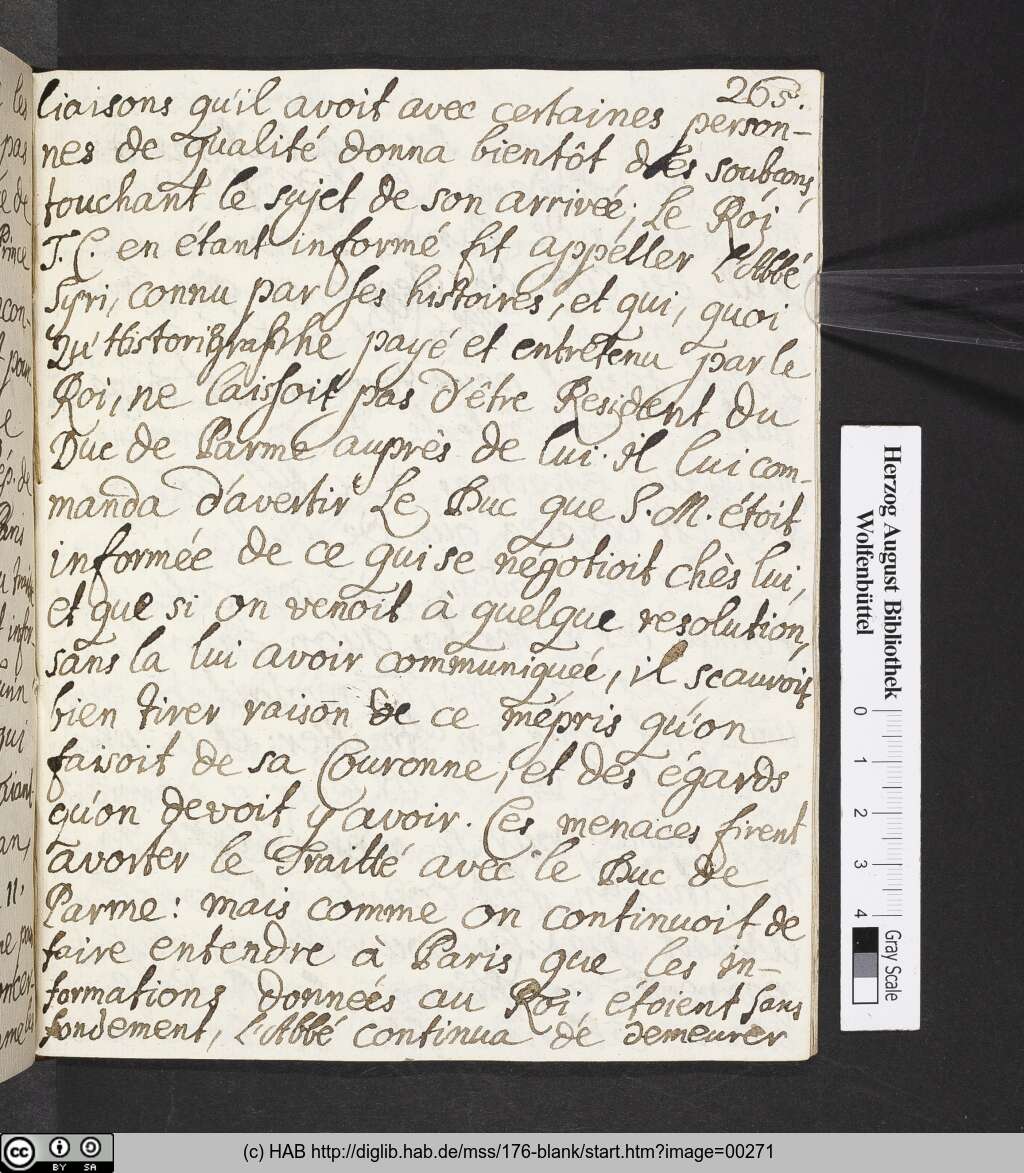 265.
liaisons qu'il avoit avec certaines person-
nes de qualité donna bientôt des soubcons,
touchant le sujet de son arriveé; Le Roi
T. C. en étant informé fit appéller L'Abbé
Syri, connu par ses histoires, et qui, quoi
Qu'Historibgraphe payé et entretenu par le
Roi, ne laissoit pas d'être Resident du
Duc de Parme auprès de lui. il lui com-
manda d'avertir Le Duc que S. M. étoit
informée de ce qui se négotioit chès lui,
et que si on venoit à quelque resolution,
sans la lui avoir communiqueé, il scauroit
bien tirer raison de ce mépris qu'on
faisoit de sa Couronne, et des égards
qu'on devoit y avoir. Ces menaces firent
avorter le Traitté avec le Duc de
Parme: mais comme on continuoit de
faire entendre à Paris que les in-
formations donneés au Roi étoient sans
fondement, L'Abbé continua de demeurer
Herzog August Bibliothek
Wolfenbüttel
0 1 2 3 4
Gray Scale
cc BY SA
(c) HAB http://diglib.hab.de/mss/176-blank/start.htm?image=00271